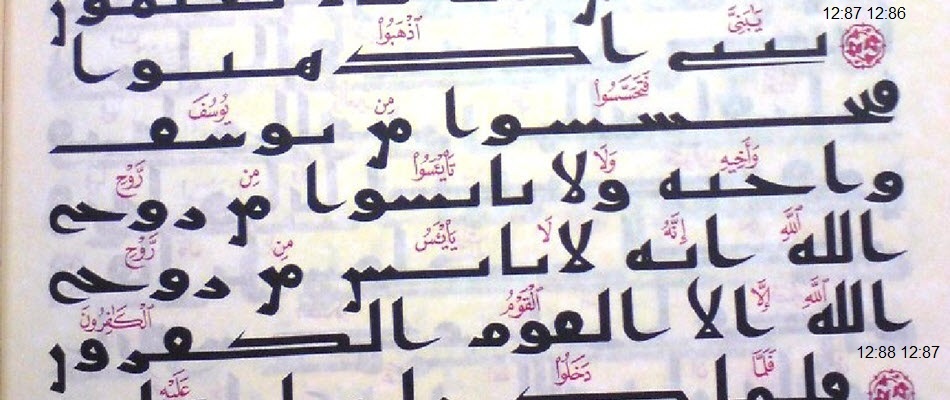 12:87 12:86
يَٰبَنِىَّ ٱذْهَبُوا۟
يبنى اذهبوا
فَتَحَسَّسُوا۟ مِن يُوسُفَ
فتحسسوا من يوسف
وَأَخِيهِ وَلَا تَا۟يْـَٔسُوا۟ مِن رَّوْحِ
واخيه ولا تايسوا من روح
ٱللَّهِ إِنَّهُۥ لَا يَا۟يْـَٔسُ مِن رَّوْحِ
الله انه لا يايس من روح
ٱللَّهِ إِلَّا ٱلْقَوْمُ ٱلْكَٰفِرُونَ
الله الا القوم الكفرون
12:88 12:87
فَلَمَّا دَخَلُوا۟ عَلَيْهِ